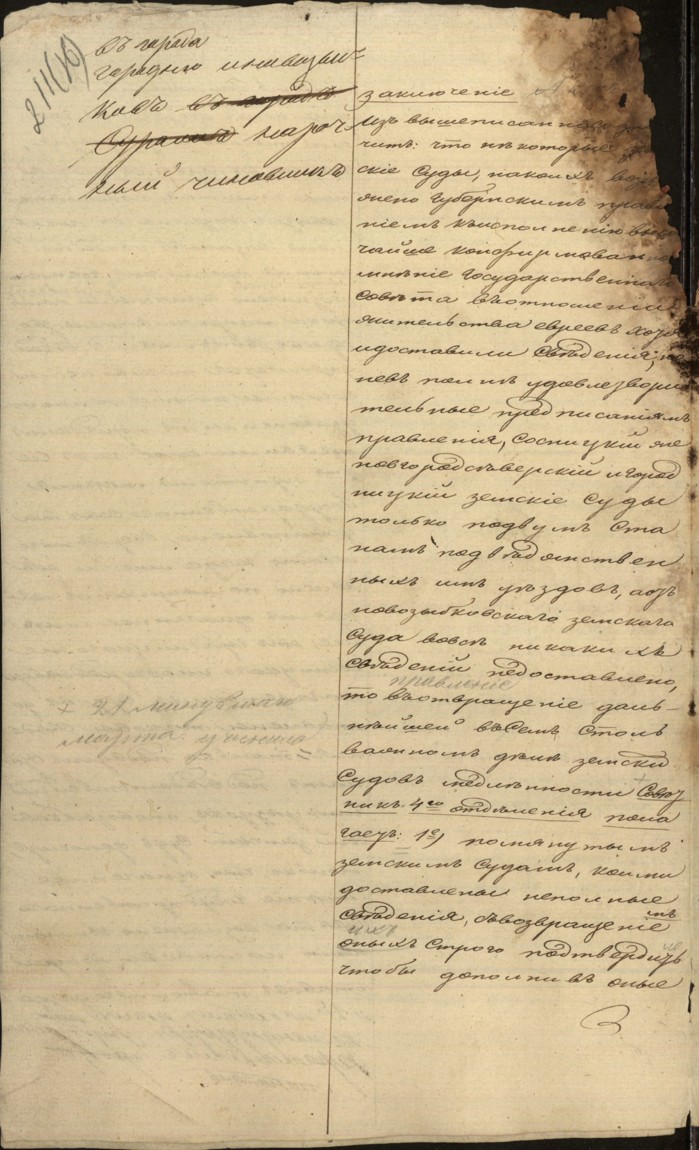 211(10)
въ города
городню и новозыб-
ковъ въ городъ
Суражъ нароч-
ный чиновникъ
заключеніе
Изъ вышеписаннаго
читъ: что некоторые
скіе Суды, на коихъ
жено Губернскимъ правле
ніемъ къ исполненію
чайше конфирмованно
мненіе Государственнаго
Совета въ отношеніи
жительства евреевъ хотя
и доставили сведенія, но
невполне удовлетвори
тельные предписаніямъ
правленія, Сосницкій же
новгородсеверскій и город
ницкій земскіе Суды
только по двумъ Ста
намъ подведомствен
ныхъ имъ уездовъ, а отъ
новозыбковскаго земскаго
Суда вовсе никакихъ
сведеній недоставлено,
правленіе
то въ отвращеніе даль-
нейшей въ семъ Столь
важномъ деле земски
Судовъ медленности Совет
никъ 4го отделенія пола
гаетъ: 1е) помянутымъ
земскимъ Судамъ, коими
доставлены неполные
сведенія, съ возвращеніемъ
ихъ
оныхъ Строго подтвердить
чтобы дополнивъ оные
+ 21 минувшаго
марта